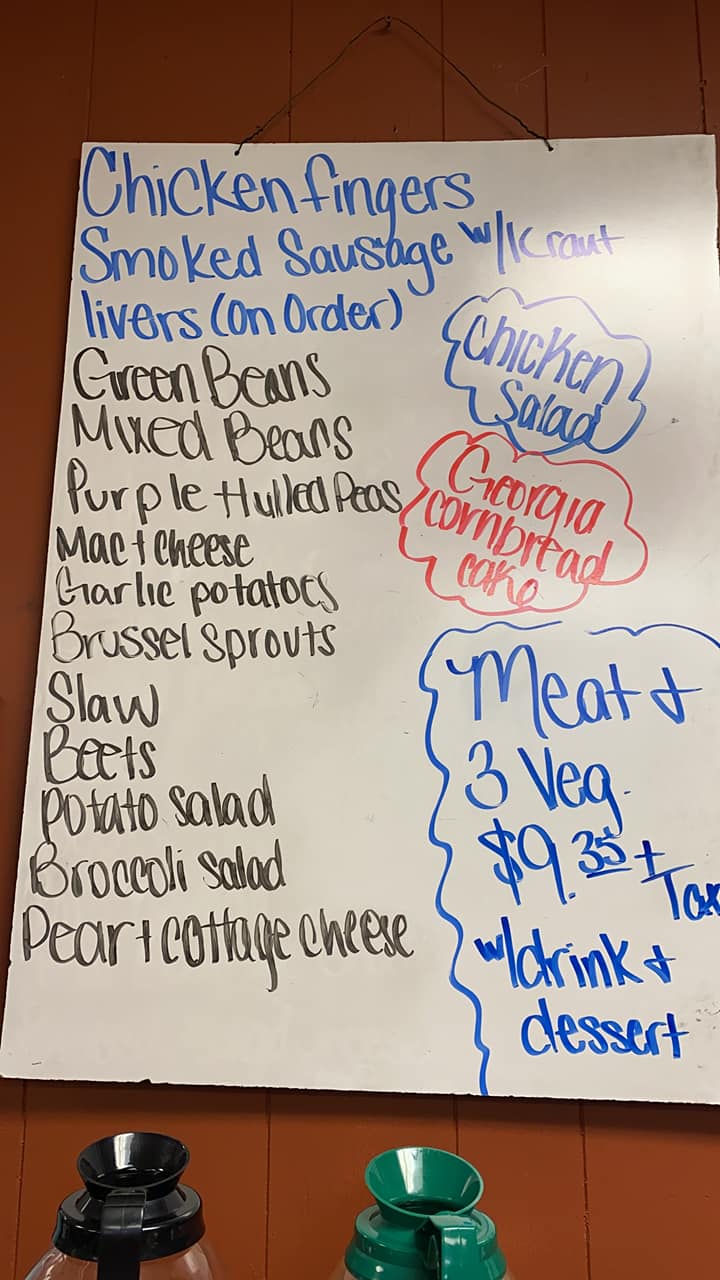 Chicken fingers
Smoked Sausage w/Kraut
livers (On Order)
Green Beans
Mixed Beans
Purple Hulled Peas
Mac + cheese
Garlic potatoes
Brussel Sprouts
Slaw
Beets
Potato Salad
Broccoli Salad
Pear + cottage cheese
Chicken
Salad
Georgia
cornbread
cake
Meat +
3 Veg.
$9.35 +
Tax
w/drink +
dessert